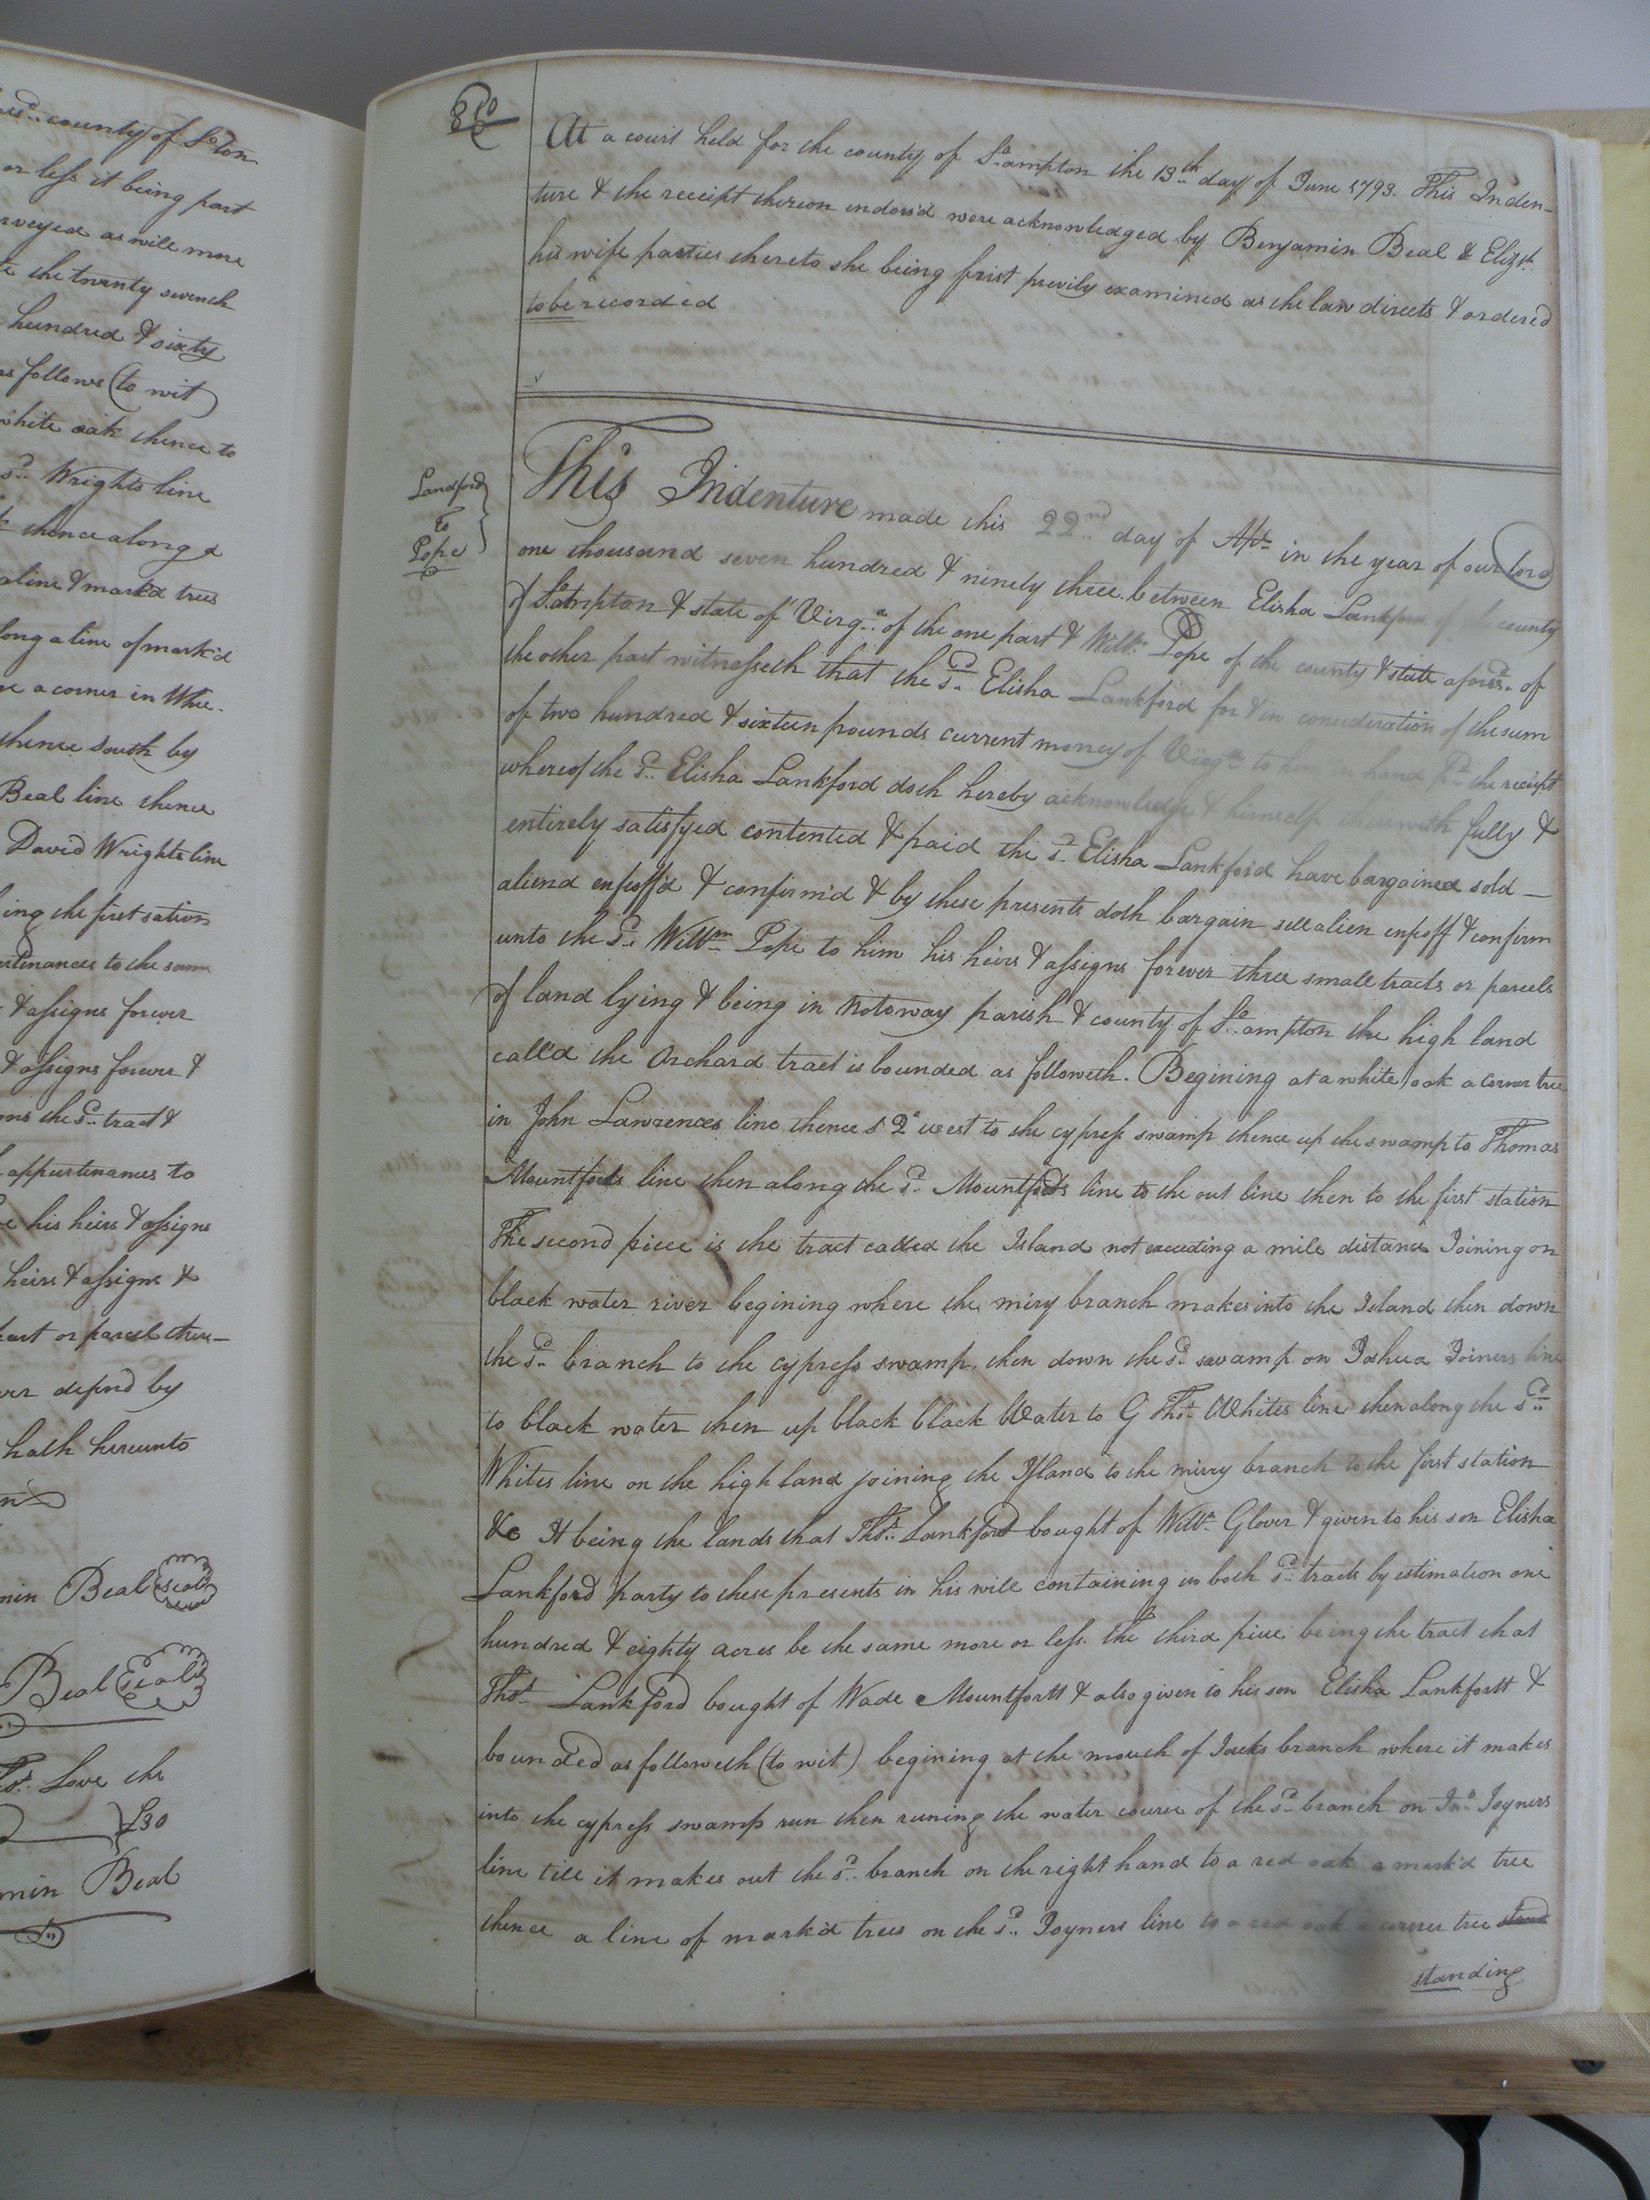 sd. county of So.ton
or less it being part
rveyed as will more
the twenty seventh
hundred & sixty
as follows (to wit)
white oak thence to
sd. Wrights line
thence along a
a line & mark'd trees
long a line of mark'd
a corner in Whee-
thence South by
Beal line thence
David Wrights line
ing the first sation
urtenances to the same
& assigns forever
& assigns forever &
the sd. tract &
appurtenances to
his heirs & assigns
heirs & assigns &
part or parcel there-
ver defend by
hath hereunto
min Beal (seal)
Beal (seal)
Love the
£30
min Beal
At a court held for the county of So.ampton the 13th day of June 1793. This Inden-
ture & the receipt thereon endors'd were acknowledged by Benjamin Beal & Elizth.
his wife parties thereto she being frist previly examined as the law directs & ordered
to be recorded
Landford
to
Pope
This Indenture made this 22nd day of Apr. in the year of our lord
one thousand seven hundred & ninety three between Elisha Lankford of the county
of So.ampton & state of Virga. of the one part & Willm. Pope of the county & state aforesd. of
the other part witnesseth that the sd. Elisha Lankford for & in consideration of the sum
of two hundred & sixteen pounds current money of Virga. to him in hand pd. the receipt
whereof the sd. Elisha Lankford doth hereby acknowledge & himself therewith fully &
entirely satisfyed contented & paid the sd. Elisha Lankford have bargained sold —
aliend enfeoff'd & confirm'd & by these presents doth bargain sell alien enfeoff & confirm
unto the sd. Willm. Pope to him his heirs & assigns forever three small tracts or parcels
of land lying & being in Notoway parish & county of So.ampton the high land
call'd the Orchard tract is bounded as followeth. Begining at a white oak a corner tree
in John Lawrences line thence s 2° west to the cypress swamp thence up the swamp to Thomas
Mountforts line then along the sd. Mountforts line to the out line then to the first station
The second piece is the tract called the Island not exceeding a mile distance Joining on
black water river begining where the miry branch makes into the Island then down
the sd. branch to the cypress swamp, then down the sd. swamp on Joshua Joiners line
to black water then up black black Water to G Thos. Whites line then along the sd.
Whites line on the high land joining the Island to the mirry branch to the first station
&c It being the lands that Thos. Lankford bought of Willm. Glover & given to his son Elisha
Lankford party to these presents in his will containing in both sd. tracts by estimation one
hundred & eighty acres be the same more or less. The third piece being the tract that
Thos. Lankford bought of Wade Mountfortt & also given to his son Elisha Lankfortt &
bounded as followeth (to wit) begining at the mouth of Jacks branch where it makes
into the cypress swamp run then runing the water course of the sd. branch on Jno. Joyners
line till it makes out the sd. branch on the right hand to a red oak a mark'd tree
thence a line of mark'd trees on the sd. Joyners line to a red oak a corner tree stand
standing